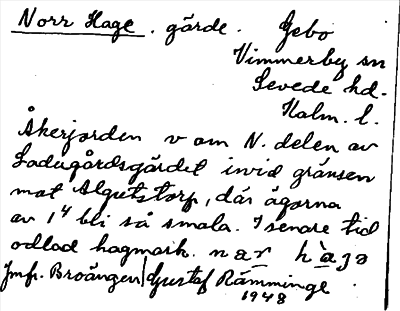 Norr Hage. gärde. Gebo
Vimmerby sn
Sevede hd.
Kalm. l.
Åkerjorden v om N. delen av
Ladugårdsgärdet invid gränsen
mot Algutstorp, där ägorna
av 1⁴ bli så smala. I senare tid
odlad hagmark. nar hàgə
Jmfr. Broängen / Gustaf Rämminge
1948